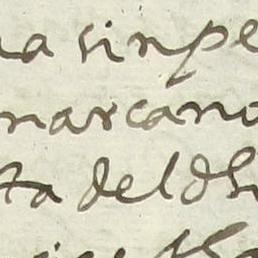 na sin pe
narcano
ta del dh